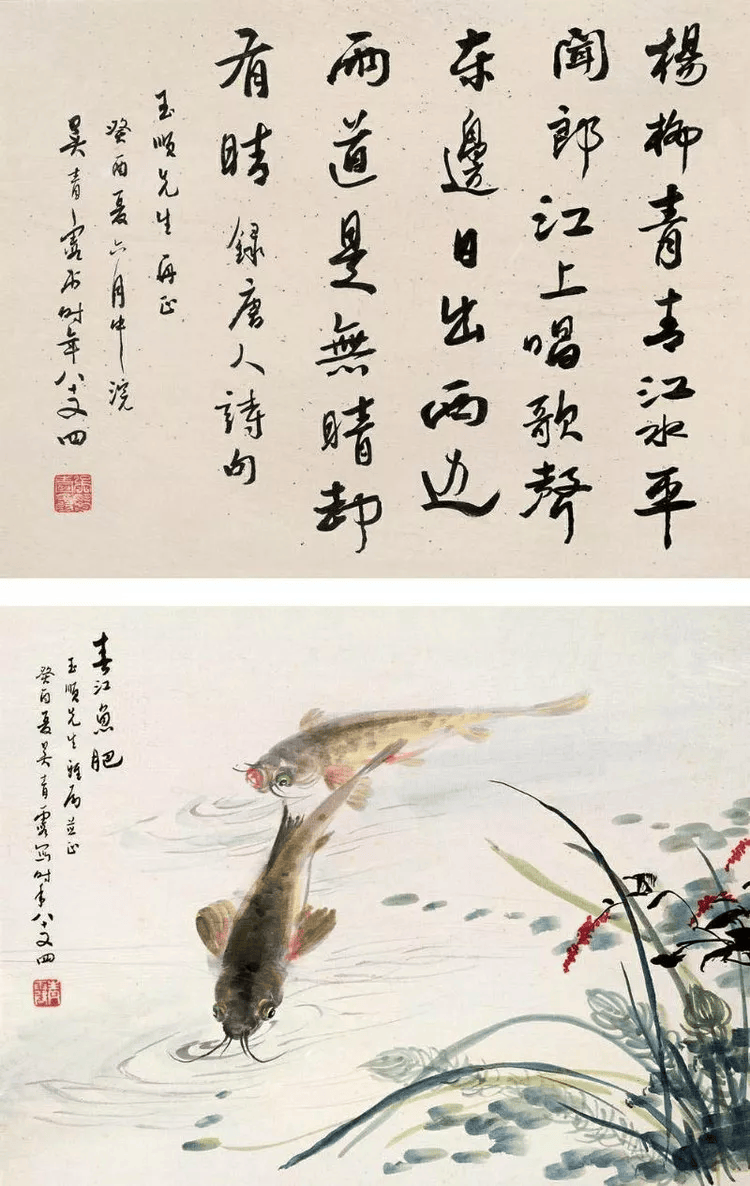 楊柳青青江水平
聞郎江上唱歌聲
东邊日出西边
雨道是無晴却
有晴 録唐人詩句
玉順先生再正
癸酉夏六月中浣
吴青霞书时年八十又四
春江魚肥
玉順先生雅属并正
癸酉夏吴青霞写时年八十又四